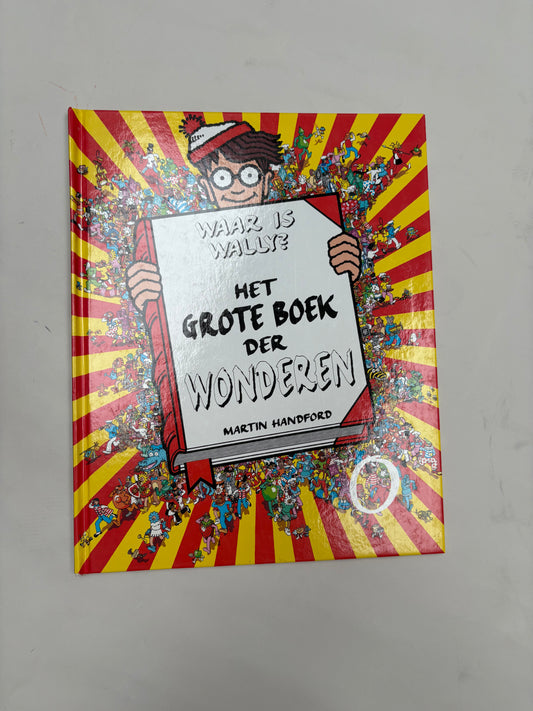 WAAR IS
WALLY?
HET
GROTE BOEK
DER
WONDEREN
MARTIN HANDFORD